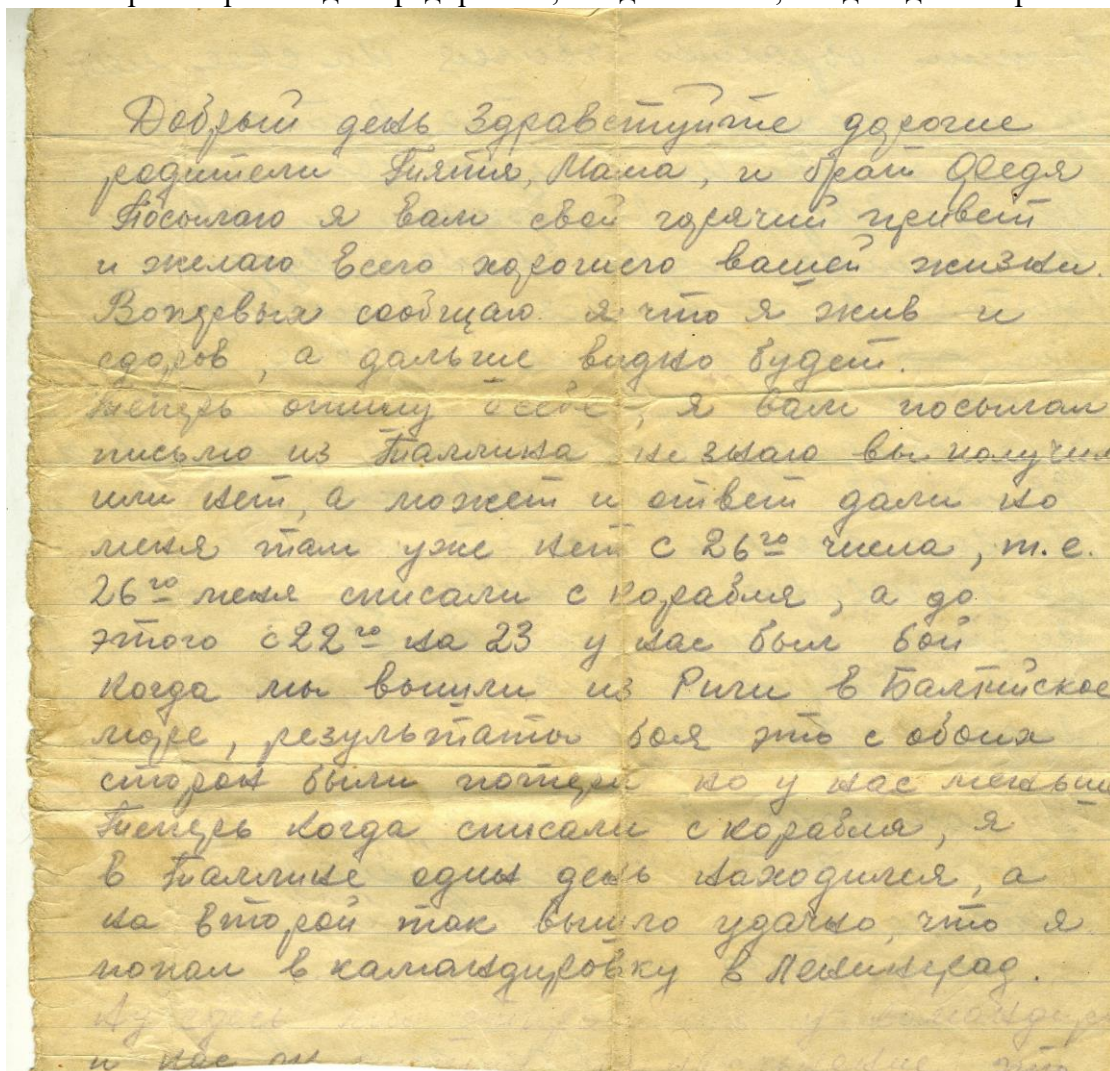 Добрый день Здравствуйте дорогие
родители Тятя, Мама, и брат Федя
Посылаю я вам свой горячий привет
и желаю всего хорошего вашей жизни.
Вопервых сообщаю я что я жив и
здоров, а дальше видно будет.
теперь опишу о себе, я вам посылал
письмо из Таллина не знаю вы получили
или нет, а может и ответ дали но
меня там уже нет с 26го числа, т.е.
26го меня списали с корабля, а до
этого с 22го на 23 у нас был бой
когда мы вышли из Риги в Балтийское
море, результаты боя это с обоих
сторон были потери но у нас меньше
Теперь когда списали с корабля, я
в Таллине один день находился, а
на второй так вышло удачно, что я
попал в камандировку в Ленинград.
Ну здесь
и нас что